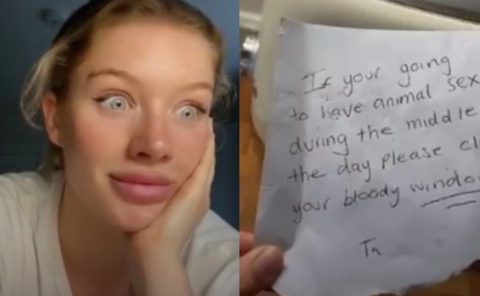 If your going
to have animal sex
during the middle
the day please
your bloody
Ta